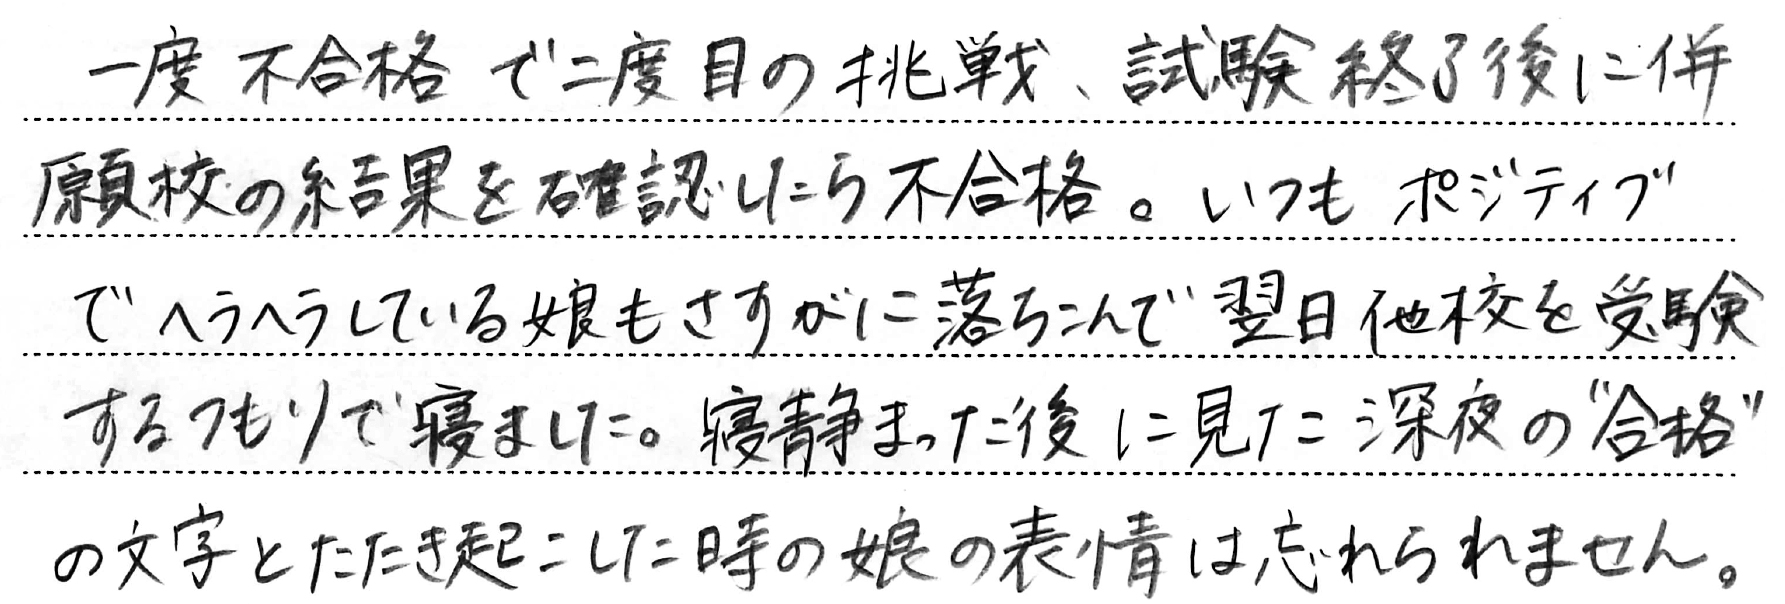 一度不合格で二度目の挑戦、試験終了後に併
願校の結果を確認したら不合格。いつもポジティブ
でヘラヘラしている娘もさすがに落ちこんで翌日他校を受験
するつもりで寝ました。寝静まった後に見た深夜の"合格"
の文字とたたき起こした時の娘の表情は忘れられません。